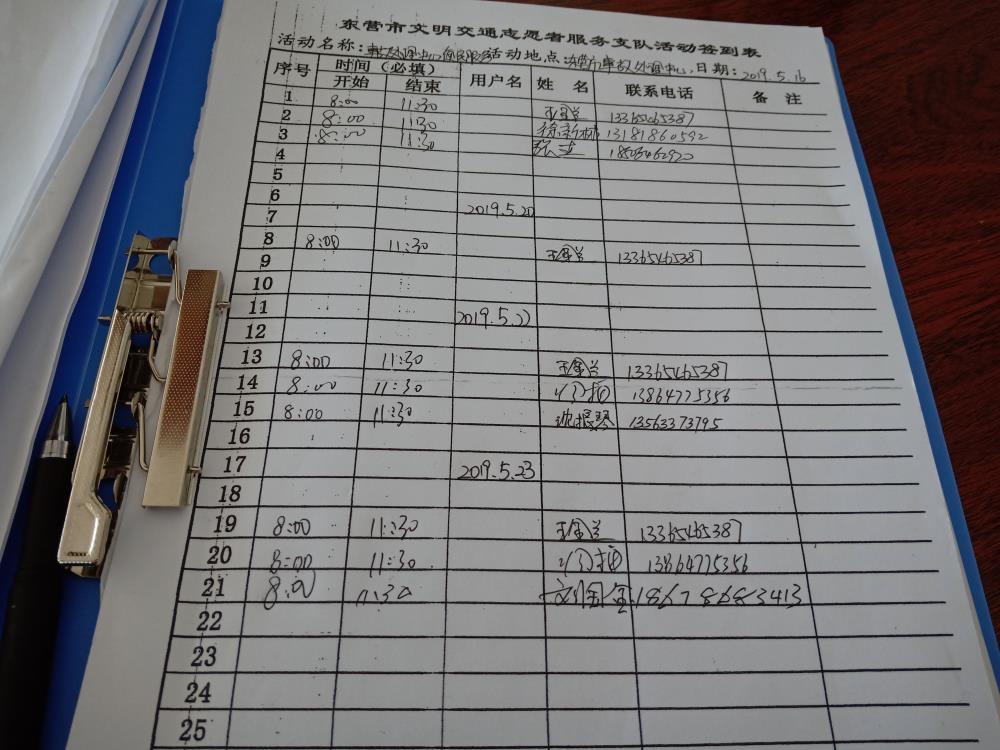 东营市文明交通志愿者服务支队活动签到表
活动名称：事故处理中心便民服务 活动地点：东营市事故处理中心 日期：2019.5.16
序号 时间（必填） 用户名 姓名 联系电话 备注
开始 结束
1 8:00 11:30 13365465387
2 8:00 11:30 徐新林 13181860592
3 8:00 11:30 张 18505462920
4
5
6
7 2019.5.20
8 8:00 11:30 13365465387
9
10
11 2019.5.22
12
13 8:00 11:30 13365465387
14 8:00 11:30 13864775356
15 8:00 11:30 沈振琴 13563373795
16
17 2019.5.23
18
19 8:00 11:30 13365465387
20 8:00 11:30 13864775356
21 8:00 11:30 18678683413
22
23
24
25